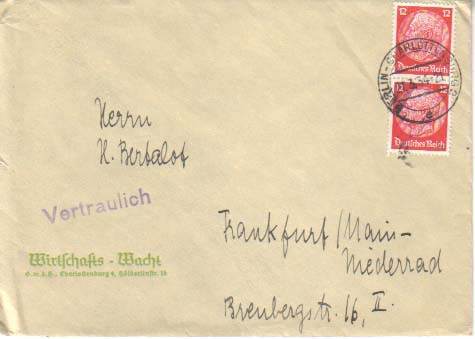 12
Deutsches Reich
BERLIN-CHARLOTTENBURG 2
12
Deutsches Reich
Herrn
H. Bertalot
Vertraulich
Frankfurt/Main-
Niederrad
Wirtschafts-Wacht
G.m.b.H., Charlottenburg 4, Hölderlinstr. 1b
Breubergstr. 16, II.